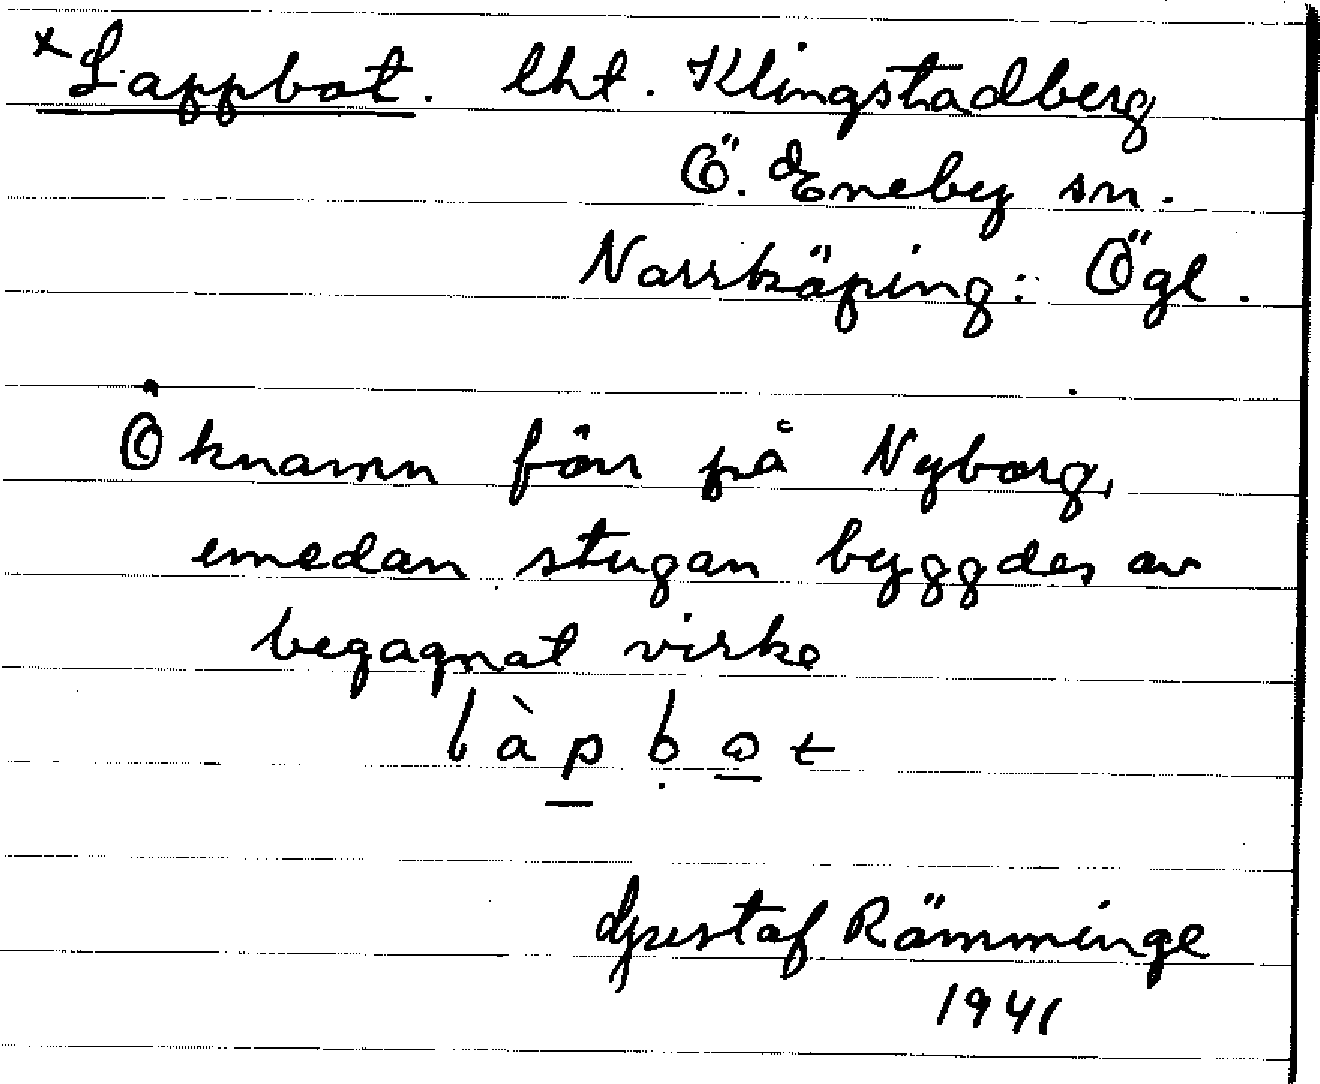 ×Lappbot. lht. Klingstadberg
Ö. Eneby sn.
Norrköping: Ögl.
Öknamn förr på Nyborg,
emedan stugan byggdes av
begagnat virke
làpbot
Gustaf Rämminge
1941